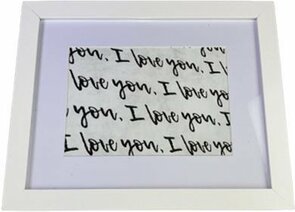 you, I love you, I
I love you, I love you,
love you, I love you, I
I love you, I love you
you, I love you, I
I love you, I love